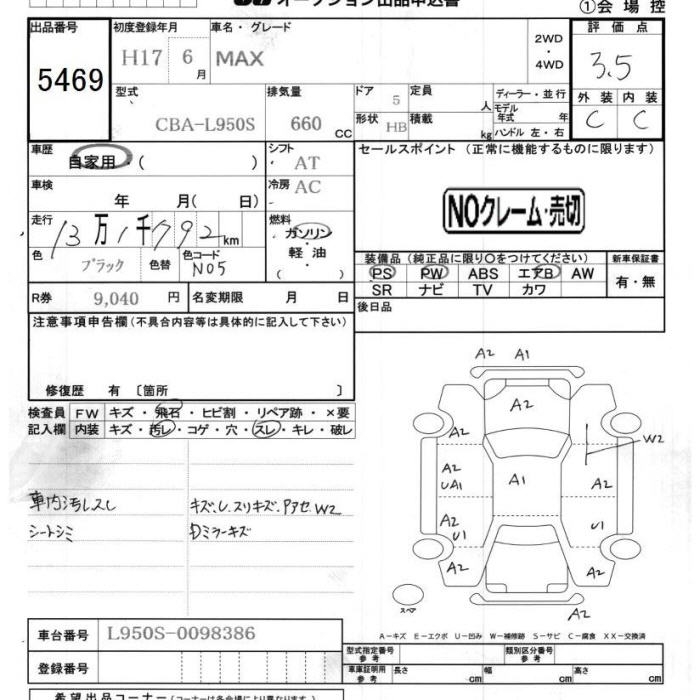 オークション出品申込書
①会 場 控
出品番号
5469
初度登録年月
H17 6 月
車名・グレード
MAX
2WD
・
4WD
評 価 点
3.5
型式
CBA-L950S
排気量
660 CC
ドア 5
形状 HB
定員 人
積載 kg
ディーラー・並行
モデル年式 年
ハンドル 左・右
外 装 内 装
C C
車歴
自家用・( )
シフト
AT
車検
年 月( 日)
冷房 AC
走行
13万1千792km
燃料
ガソリン
・
軽 油
・( )
色
ブラック
色替
色コード
N05
R券 9,040 円
名変期限 月 日
セールスポイント (正常に機能するものに限ります)
NOクレーム・売切
装備品 (純正品に限り〇をつけてください)
新車保証書
PS PW ABS エアB AW
SR ナビ TV カワ
有・無
後日品
注意事項申告欄 (不具合内容等は具体的に記入して下さい)
修復歴 有 〔箇所 〕
検査員
記入欄
FW キズ・飛石・ヒビ割・リペア跡・×要
内装 キズ・汚レ・コゲ・穴・スレ・キレ・破レ
車内汚レスレ
シートシミ
キズ、U、スリキズ、Pアセ W2
Dミラーキズ
A2 A1
A2
A2
W2
A2
UA1
A1
A2
A2
U1
U1
A2
A2
A2
スペア
A-キズ E-エクボ U-凹み W-補修跡 S-サビ C-腐食 XX-交換済
車台番号
L950S-0098386
登録番号
型式指定番号
参 考
類別区分番号
参 考
車庫証明用
参 考
長さ cm
幅 cm
高さ cm
希望出品コーナー